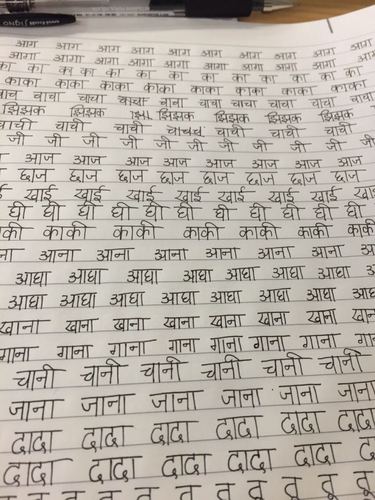 आग आग आग आग आग आग आग आग
आगा आगा आगा आगा आगा आगा आगा आगा
का का का का का का का का का
काका काका काका काका काका काका काका
चाचा चाचा चाचा चाचा चाचा चाचा चाचा
झिझक झिझक झिझक झिझक झिझक झिझक
चाची चाची चाची चाची चाची चाची
जी जी जी जी जी जी जी जी जी
आज आज आज आज आज आज आज
छाज छाज छाज छाज छाज छाज छाज
खाई खाई खाई खाई खाई खाई खाई
घी घी घी घी घी घी घी घी घी घी घी
काकी काकी काकी काकी काकी काकी
आना आना आना आना आना आना
आधा आधा आधा आधा आधा आधा आधा
आधा आधा आधा आधा आधा आधा आधा
खाना खाना खाना खाना खाना खाना खाना
गाना गाना गाना गाना गाना गाना गाना
चानी चानी चानी चानी चानी चानी
जाना जाना जाना जाना जाना जाना
दादा दादा दादा दादा दादा
दादा दादा दादा दादा दादा